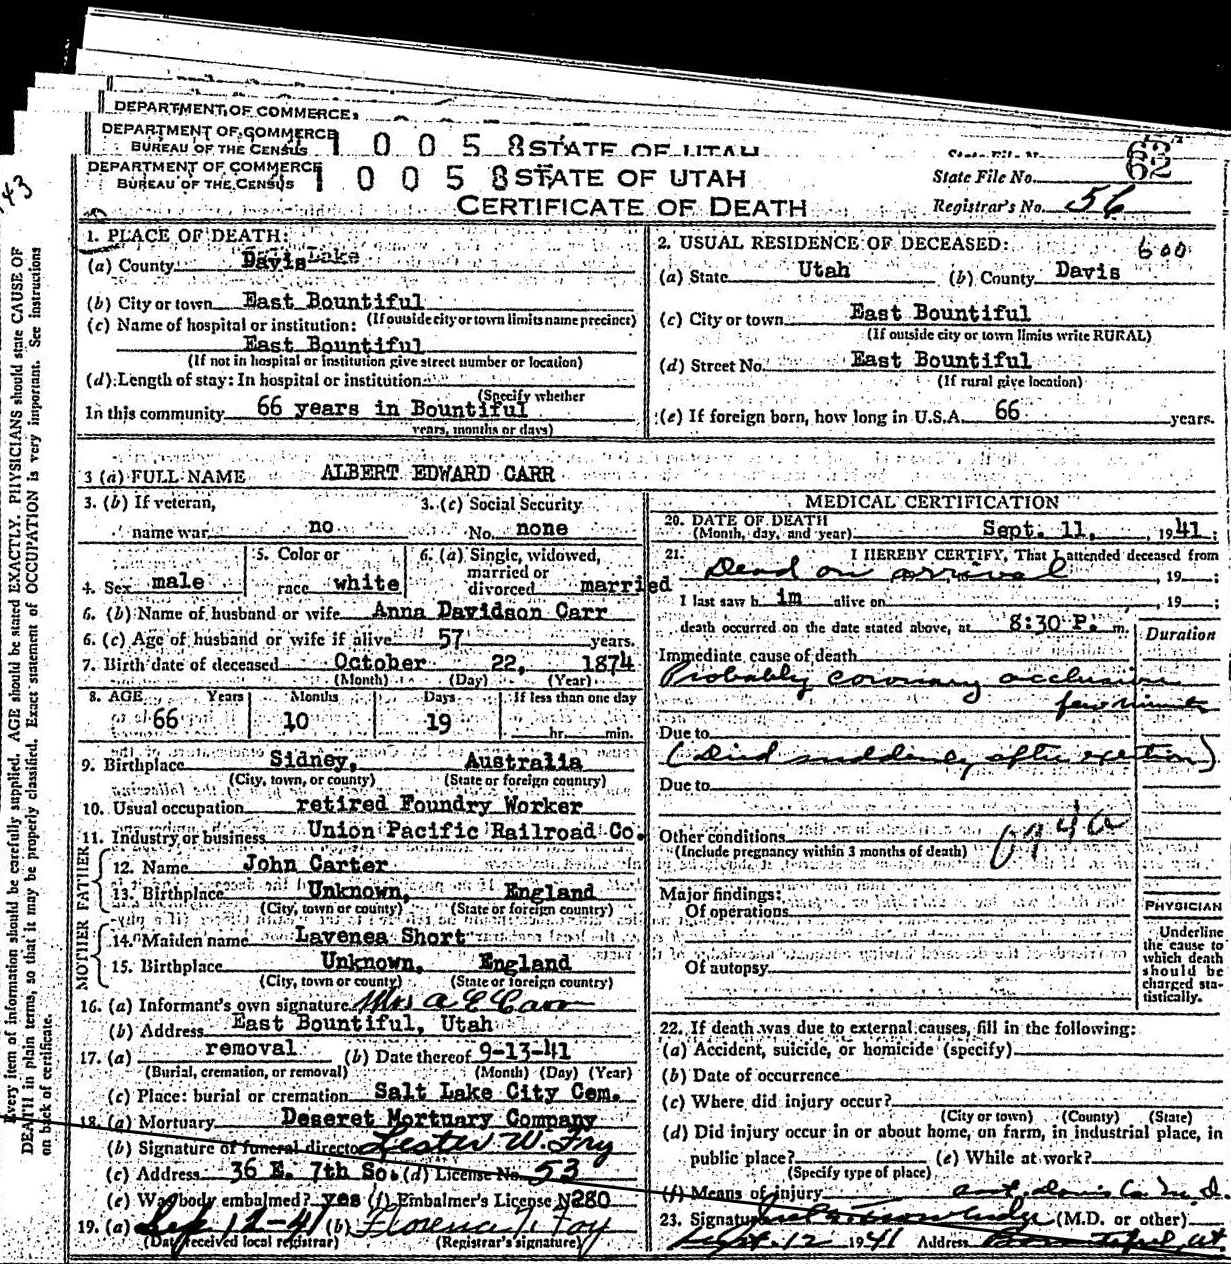 DEPARTMENT OF COMMERCE
DEPARTMENT OF COMMERCE
BUREAU OF THE CENSUS 1 0 0 5 8 STATE OF UTAH
62
DEPARTMENT OF COMMERCE
BUREAU OF THE CENSUS 1 0 0 5 8 STATE OF UTAH
State File No. 62
143
CERTIFICATE OF DEATH
Registrar's No. 56
Every item of information should be carefully supplied. AGE should be stated EXACTLY. PHYSICIANS should state CAUSE OF
DEATH in plain terms, so that it may be properly classified. Exact statement of OCCUPATION is very important. See instructions
on back of certificate.
1. PLACE OF DEATH:
(a) County Davis Lake
(b) City or town East Bountiful
(If outside city or town limits name precinct)
(c) Name of hospital or institution:
East Bountiful
(If not in hospital or institution give street number or location)
(d) Length of stay: In hospital or institution
(Specify whether
In this community 66 years in Bountiful
years, months or days)
2. USUAL RESIDENCE OF DECEASED: 600
(a) State Utah (b) County Davis
(c) City or town East Bountiful
(If outside city or town limits write RURAL)
(d) Street No. East Bountiful
(If rural give location)
(e) If foreign born, how long in U.S.A. 66 years.
3 (a) FULL NAME ALBERT EDWARD CARR
3. (b) If veteran,
name war no
3. (c) Social Security
No. none
4. Sex male
5. Color or
race white
6. (a) Single, widowed,
married or
divorced married
6. (b) Name of husband or wife Anna Davidson Carr
6. (c) Age of husband or wife if alive 57 years.
7. Birth date of deceased October 22, 1874
(Month) (Day) (Year)
8. AGE Years Months Days If less than one day
66 10 19 hr. min.
9. Birthplace Sidney, Australia
(City, town, or county) (State or foreign country)
10. Usual occupation retired Foundry Worker
11. Industry or business Union Pacific Railroad Co.
FATHER
12. Name John Carter
13. Birthplace Unknown, England
(City, town or county) (State or foreign country)
MOTHER
14. Maiden name Lavenea Short
15. Birthplace Unknown, England
(City, town or county) (State or foreign country)
16. (a) Informant's own signature Mrs A E Carr
(b) Address East Bountiful, Utah
17. (a) removal (b) Date thereof 9-13-41
(Burial, cremation, or removal) (Month) (Day) (Year)
(c) Place: burial or cremation Salt Lake City Cem.
18. (a) Mortuary Deseret Mortuary Company
(b) Signature of funeral director Lester W. Fry
(c) Address 36 E. 7th So. (d) License No. 53
(e) Was body embalmed? yes (f) Embalmer's License N280
19. (a) Sep 12-41 (b) Florence J. Foy
(Date received local registrar) (Registrar's signature)
MEDICAL CERTIFICATION
20. DATE OF DEATH
(Month, day, and year) Sept. 11, 1941;
21. I HEREBY CERTIFY, That I attended deceased from
Dead on arrival, 19 ;
I last saw h im alive on , 19 ;
death occurred on the date stated above, at 8:30 P. m.
Duration
Immediate cause of death
Probably coronary occlusion
few minutes
Due to
(Died suddenly after exertion)
Due to
Other conditions 094a
(Include pregnancy within 3 months of death)
Major findings:
Of operations
Of autopsy
PHYSICIAN
Underline
the cause to
which death
should be
charged sta-
tistically.
22. If death was due to external causes, fill in the following:
(a) Accident, suicide, or homicide (specify)
(b) Date of occurrence
(c) Where did injury occur?
(City or town) (County) (State)
(d) Did injury occur in or about home, on farm, in industrial place, in
public place? (e) While at work?
(Specify type of place)
(f) Means of injury
23. Signature (M.D. or other)
Sept. 12 1941 Address